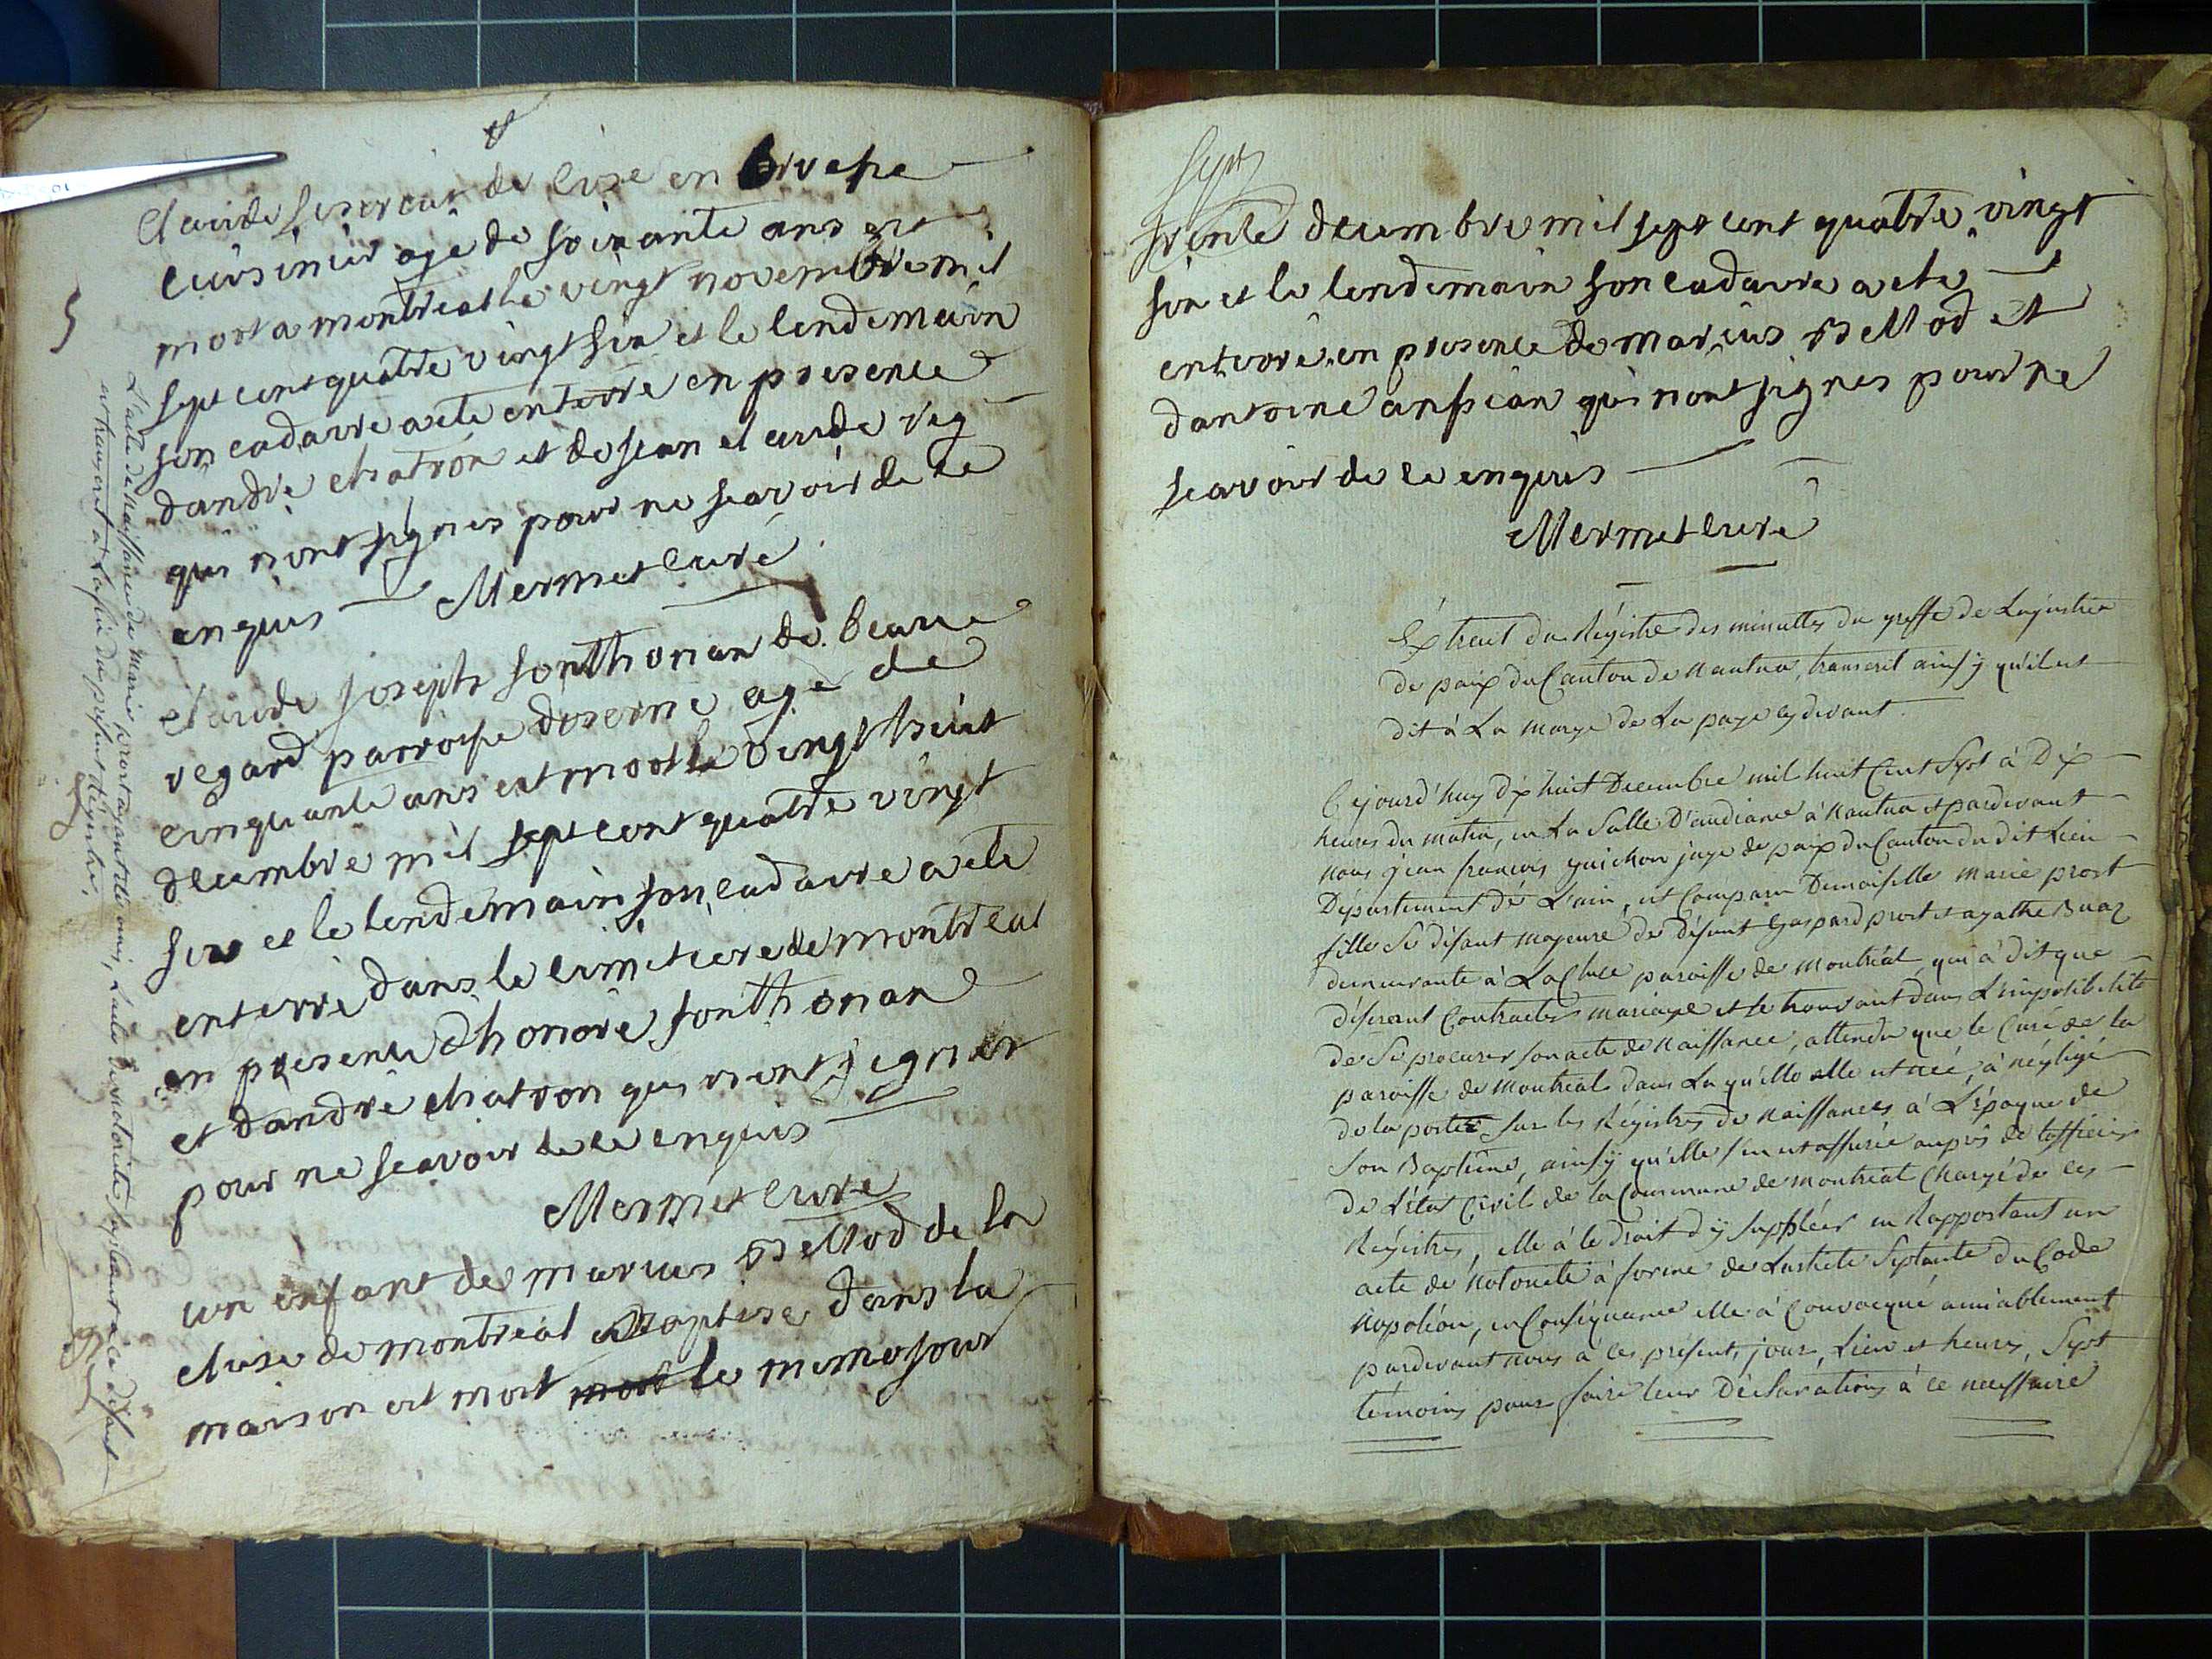 claude de cise en bresse
cuisinier agé de soixante ans est
mort a montreal le vingt novembre mil
sept cent quatre vingt six et le lendemain
son cadavre a ete enterré en presence
dandré chatron et de jean claude reg
qui nont signes pour ne scavoir de ce
enquis Mermet curé
claude joseph fonthonan de beau
regard parroisse doserne agé de
cinquante ans est mort le vingt huit
decembre mil sept cent quatre vingt
six et le lendemain son cadavre a ete
enterré dans le cimetiere de montreal
en presence dhonoré fonthonan
et dandré chatron qui nont signer
pour ne scavoir de ce enquis
Mermet curé
un enfant de marius Bellod de la
cluse de montreal Baptisé dans la
maison est mort mort le meme jour
L'acte de Naissance de Marie prost ayant été omis, L'acte de notoriété suppléant à ce défaut
est transcrit à La fin du présent Régistre.
Sept
trente decembre mil sept cent quatre vingt
six et le lendemain son cadavre a ete
enterré en presence de marius Bellod et
dantoine anssian qui nont signes pour ne
scavoir de ce enquis
Mermet curé
Extrait du Régistre des minuttes du greffe de La justice
de paix du Canton de Nantua, transcrit ainsÿ qu'il est
dit à La marge de La page cy devant.
Cejourd'huy dix huit Decembre mil huit Cent Sept à Dix
heures du matin, en La Salle D'audiance à Nantua et pardevant
Nous jean françois guichon juge de paix du Canton du dit Lieu
Département de L'ain, est Comparu Demoiselle Marie prost
fille Se disant Majeure de défunt Gaspard prost et agathe Buaz
demeurante à La Cluse paroisse de Montréal, qui à dit que
désirant Contracter mariage et Se trouvant dans L'impossibilité
de Se procurer Son acte de Naissance, attendu que le Curé de la
paroisse de Montréal dans La qu'elle elle est née, à négligé
de la porter Sur les Régistres de Naissances à L'époque de
Son Baptême, ainsÿ qu'elle s'en est assurée auprès de l'officier
de L'état Civil de la Commune de Montréal Chargé de ces
Régistres, elle à le Droit d'ÿ Suppléer en Rapportant un
acte de Notoriété à forme de L'article Septante du Code
Napoléon, en Conséquence elle à Convoqué amiablement
pardevant nous à ces présents, jour, Lieu et heures, Sept
témoins pour faire leur Déclarations à ce nécessaire